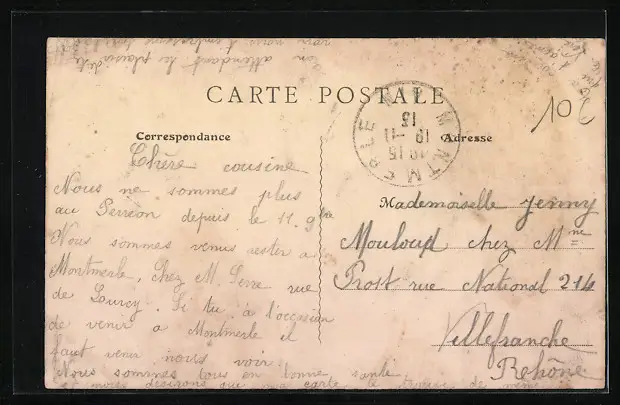 CARTE POSTALE
Correspondance
Adresse
10
MONTMERLE
15
19 -11
Chère cousine
Nous ne sommes plus
au Perréon depuis le 11. 9bre
Nous sommes venus rester a
Montmerle, chez M. Serre rue
de Lourcy. Si tu à l'occasion
de venir a Montmerle il
faut venir nous voir.
Nous sommes tous en bonne santé
et nous désirons que ma carte de même
en attendant le plaisir de
Mademoiselle Jenny
Mouloud chez Mme
Prost rue National 214
Villefranche
Rhône